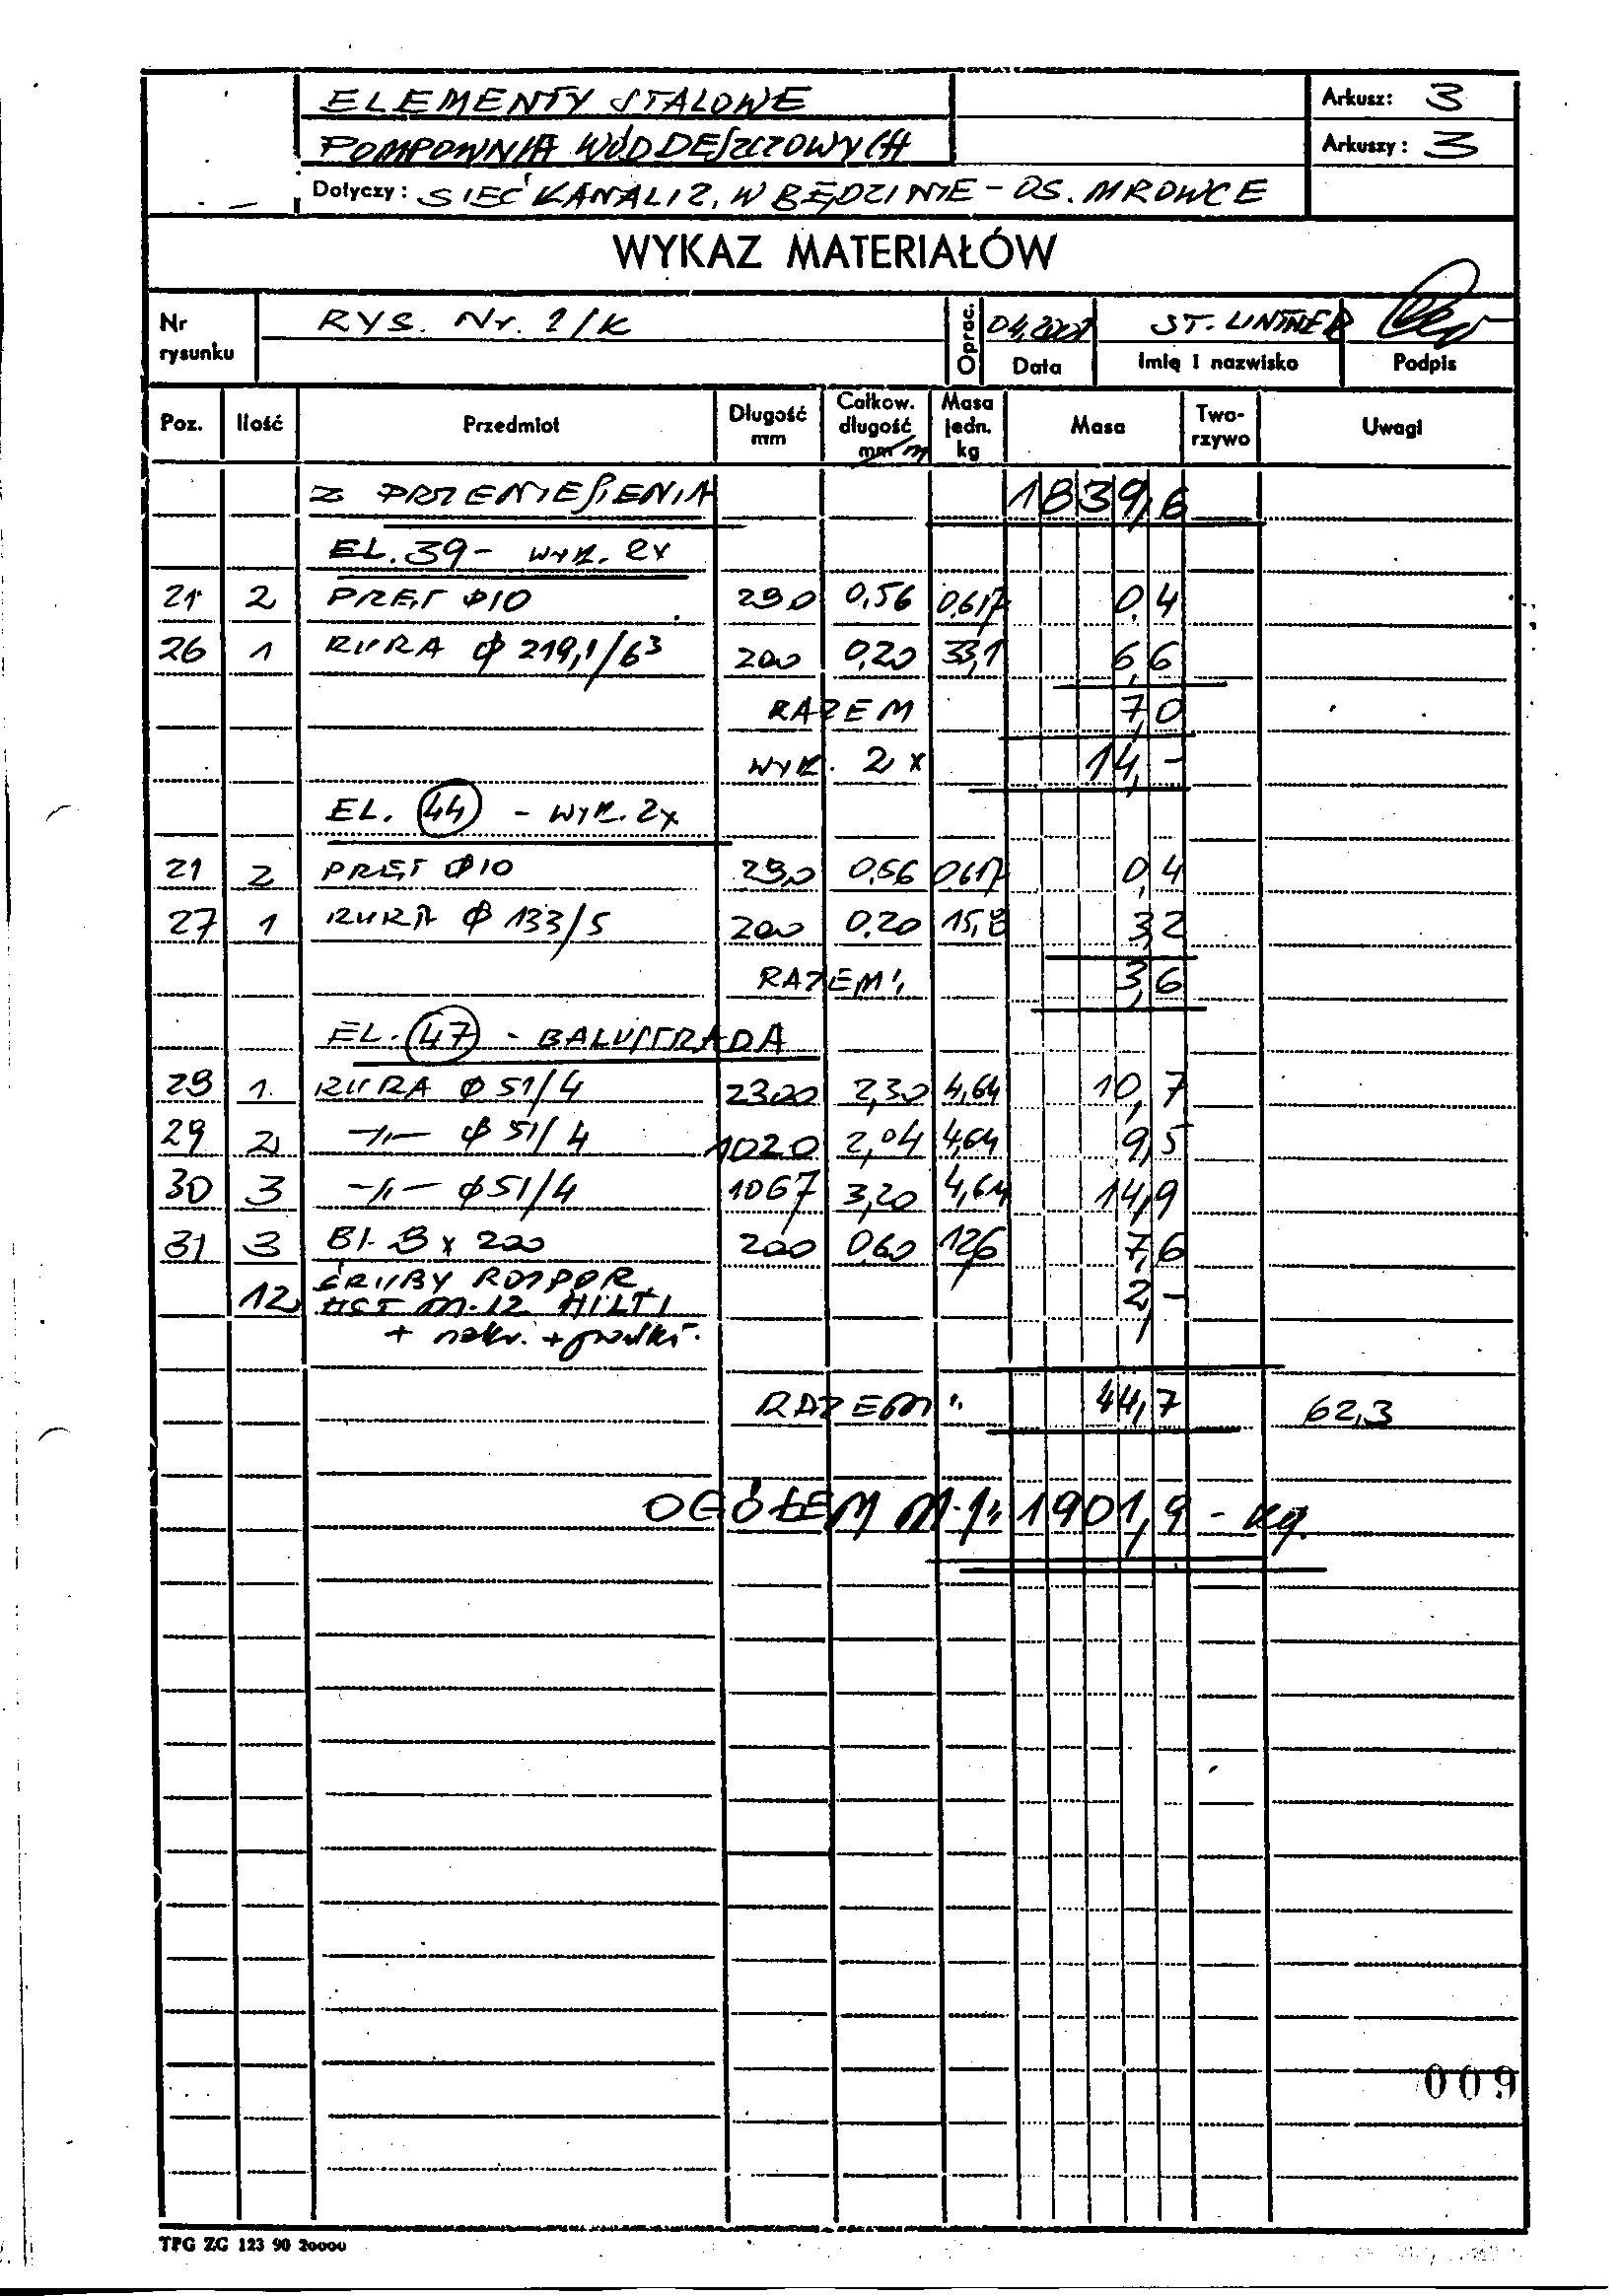 ELEMENTY STALOWE
Arkusz: 3
POMPOWNIA WÓD DESZCZOWYCH
Arkuszy: 3
Dotyczy: SIEĆ KANALIZ. W BĘDZINIE - OS. MROWCE
WYKAZ MATERIAŁÓW
Nr rysunku RYS. Nr. 1/K Oprac. 04,2001 ST. LINTNER
Data Imię i nazwisko Podpis
Poz. Ilość Przedmiot Długość mm Całkow. długość mm m Masa jedn. kg Masa Two-rzywo Uwagi
Z PRZENIESIENIA 1839,6
EL. 39 - WYK. 2x
21 2 PRĘT Φ10 290 0,56 0,617 0,4
26 1 RURA Φ 219,1/6³ 200 0,20 33,1 6,6
RAZEM 7,0
WYK. 2x 14,-
EL. 44 - WYK. 2x
21 2 PRĘT Φ10 290 0,56 0,617 0,4
27 1 RURA Φ 133/5 200 0,20 15,8 3,2
RAZEM: 3,6
EL. 47 - BALUSTRADA
28 1. RURA Φ 51/4 2300 2,30 4,64 10,7
29 2 -//- Φ 51/4 1020 2,04 4,64 9,5
30 3 -//- Φ 51/4 1067 3,20 4,64 14,9
31 3 Bl. 8 x 200 200 0,60 12,6 7,6
12 ŚRUBY ROZPOR.
HST M-12 HILTI 2,-
+ nakr. + podkł.
RAZEM: 44,7 62,3
OGÓŁEM 1901,9 - kg.
009
TPG ZG 123 90 20000